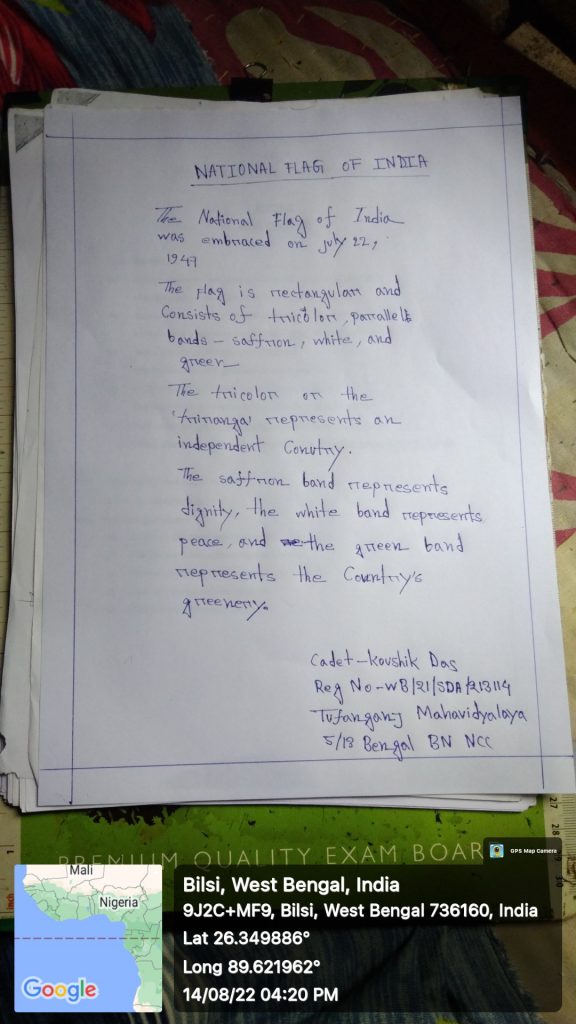 NATIONAL FLAG OF INDIA
The National Flag of India
was embraced on July 22,
1947
The flag is rectangular and
Consists of tricolor, parrallels
bands - saffron, white, and
green
The tricolor or the
'triranga' represents an
independent Conutry.
The saffron band represents
dignity, the white band represents
peace, and the green band
represents the Country's
greenery.
Cadet - Koushik Das
Reg No - WB/21/SDA/213114
Tufanganj Mahavidyalaya
5/13 Bengal BN NCC
PREMIUM QUALITY EXAM BOAR
GPS Map Camera
Mali
Nigeria
Google
Bilsi, West Bengal, India
9J2C+MF9, Bilsi, West Bengal 736160, India
Lat 26.349886°
Long 89.621962°
14/08/22 04:20 PM